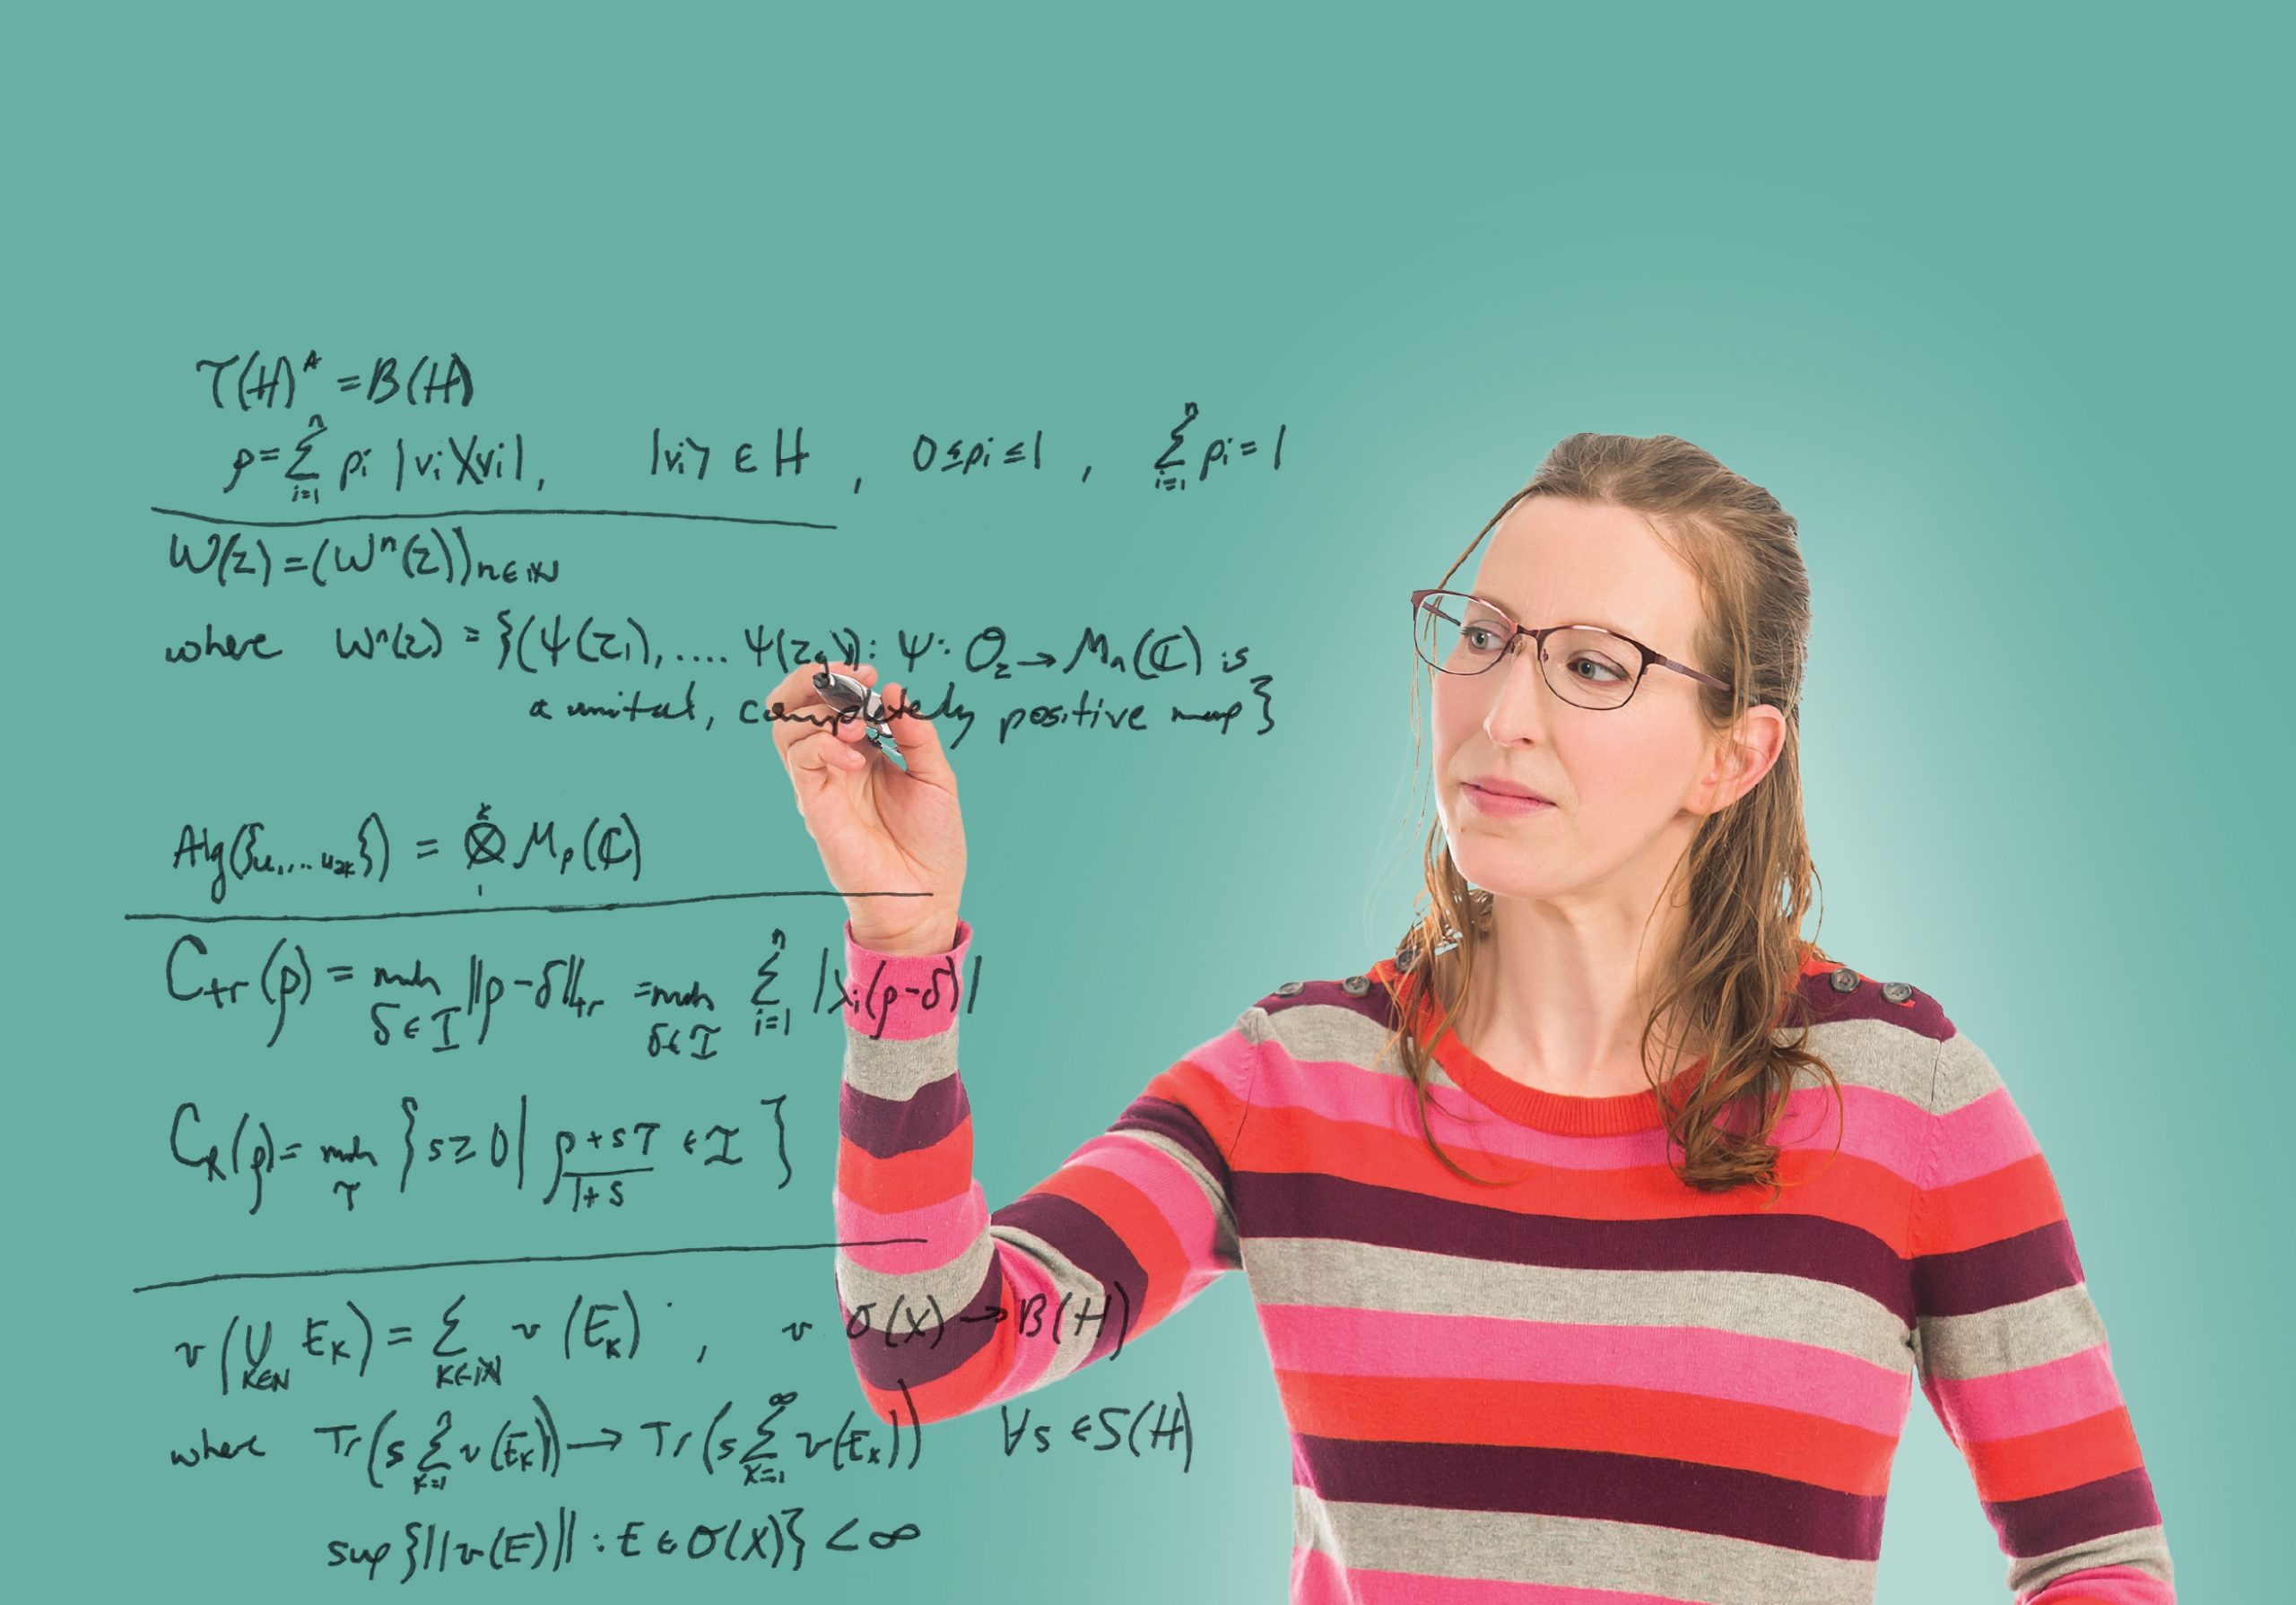 T(H)* = B(H)
ρ = Σ_{i=1}^{n} pi |vi⟩⟨vi|, |vi⟩ ∈ H , 0 ≤ pi ≤ 1 , Σ_{i=1}^{n} pi = 1
W(z) = (Wⁿ(z))_{n∈ℕ}
where Wⁿ(z) = {(ψ(z₁), .... ψ(z_g)): ψ: O_z → M_n(ℂ) is
a unital, completely positive map}
Alg({u₁,... u_{2k}}) = ⊗_{1}^{k} M_p(ℂ)
C_{tr}(ρ) = min_{δ∈I} ||ρ-δ||_{tr} = min_{δ∈I} Σ_{i=1}^{n} |λi(ρ-δ)|
C_R(ρ) = min_τ {s ≥ 0 | (ρ+sτ)/(1+s) ∈ I}
ν(∪_{k∈N} E_k) = Σ_{k∈ℕ} ν(E_k) , ν O(X) → B(H)
where Tr(s Σ_{k=1}^{n} ν(E_k)) → Tr(s Σ_{k=1}^{∞} ν(E_k)) ∀s ∈ S(H)
sup{||ν(E)|| : E ∈ O(X)} < ∞